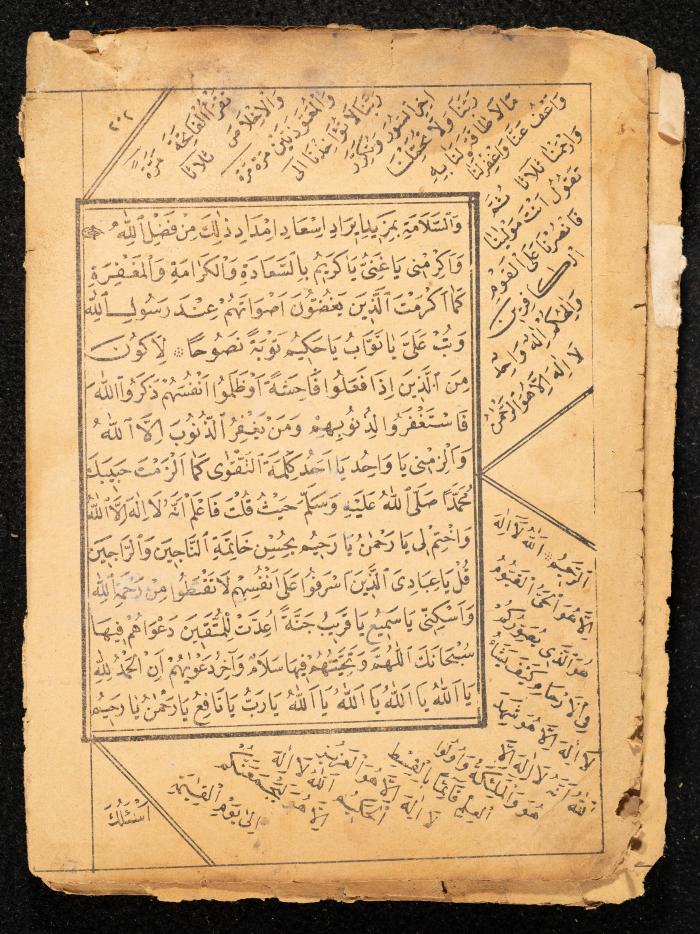 ٢٠٢
وَالسَّلَامَةِ بِمَزِيدِ اِيرَادِ اِسْعَادِ اِمْدَادِ ذٰلِكَ مِنْ فَضْلِ اللّٰهِ
وَاَكْرِمْنِى يَا غَنِىُّ يَا كَرِيمُ بِالسَّعَادَةِ وَالْكَرَامَةِ وَالْمَغْفِرَةِ
كَمَا اَكْرَمْتَ الَّذِينَ يَغُضُّونَ اَصْوَاتَهُمْ عِنْدَ رَسُولِ اللّٰهِ
وَتُبْ عَلَىَّ يَا تَوَّابُ يَا حَكِيمُ تَوْبَةً نَصُوحًا ۞ لِاَكُونَ
مِنَ الَّذِينَ اِذَا فَعَلُوا فَاحِشَةً اَوْ ظَلَمُوا اَنْفُسَهُمْ ذَكَرُوا اللّٰهَ
فَاسْتَغْفَرُوا لِذُنُوبِهِمْ وَمَنْ يَغْفِرُ الذُّنُوبَ اِلَّا اللّٰهُ
وَاَلْزِمْنِى يَا وَاحِدُ يَا اَحَدُ كَلِمَةَ التَّقْوٰى كَمَا اَلْزَمْتَ حَبِيبَكَ
مُحَمَّدًا صَلَّى اللّٰهُ عَلَيْهِ وَسَلَّمَ حَيْثُ قُلْتَ فَاعْلَمْ اَنَّهُ لَا اِلٰهَ اِلَّا اللّٰهُ
وَاخْتِمْ لِى يَا رَحْمٰنُ يَا رَحِيمُ بِحُسْنِ خَاتِمَةِ النَّاجِينَ وَالرَّاجِينَ
قُلْ يَا عِبَادِىَ الَّذِينَ اَسْرَفُوا عَلٰى اَنْفُسِهِمْ لَا تَقْنَطُوا مِنْ رَحْمَةِ اللّٰهِ
وَاَسْكِنِّى يَا سَمِيعُ يَا قَرِيبُ جَنَّةً اُعِدَّتْ لِلْمُتَّقِينَ دَعْوَاهُمْ فِيهَا
سُبْحَانَكَ اللّٰهُمَّ وَتَحِيَّتُهُمْ فِيهَا سَلَامٌ وَآخِرُ دَعْوٰيهُمْ اَنِ الْحَمْدُ لِلّٰهِ
يَا اَللّٰهُ يَا اَللّٰهُ يَا اَللّٰهُ يَا اَللّٰهُ يَا رَبُّ يَا نَافِعُ يَا رَحْمٰنُ يَا رَحِيمُ
تَقْرَأُ الْفَاتِحَةَ مَرَّةً
وَالْاِخْلَاصَ ثَلَاثًا
وَالْمُعَوَّذَتَيْنِ مَرَّةً مَرَّةً
رَبَّنَا لَا تُؤَاخِذْنَا اِلٰى
اٰخِرِ السُّورَةِ وَتُكَرِّرُ
رَبَّنَا وَلَا تُحَمِّلْنَا
مَا لَا طَاقَةَ لَنَا بِهِ
وَاعْفُ عَنَّا وَاغْفِرْ لَنَا
وَارْحَمْنَا ثَلَاثًا ثُمَّ
تَقُولُ اَنْتَ مَوْلٰينَا
فَانْصُرْنَا عَلَى الْقَوْمِ
الْكَافِرِينَ
وَاِلٰهُكُمْ اِلٰهٌ وَاحِدٌ
لَا اِلٰهَ اِلَّا هُوَ الرَّحْمٰنُ
الرَّحِيمُ ۞ اَللّٰهُ لَا اِلٰهَ
اِلَّا هُوَ الْحَىُّ الْقَيُّومُ
هُوَ الَّذِى يُصَوِّرُكُمْ
فِى الْاَرْحَامِ كَيْفَ يَشَاءُ
لَا اِلٰهَ اِلَّا هُوَ شَهِدَ
اللّٰهُ اَنَّهُ لَا اِلٰهَ اِلَّا
هُوَ وَالْمَلٰئِكَةُ وَاُولُوا
الْعِلْمِ قَائِمًا بِالْقِسْطِ
لَا اِلٰهَ اِلَّا هُوَ الْعَزِيزُ
الْحَكِيمُ اَللّٰهُ لَا اِلٰهَ
اِلَّا هُوَ لَيَجْمَعَنَّكُمْ
اِلٰى يَوْمِ الْقِيٰمَةِ
اَسْئَلُكَ